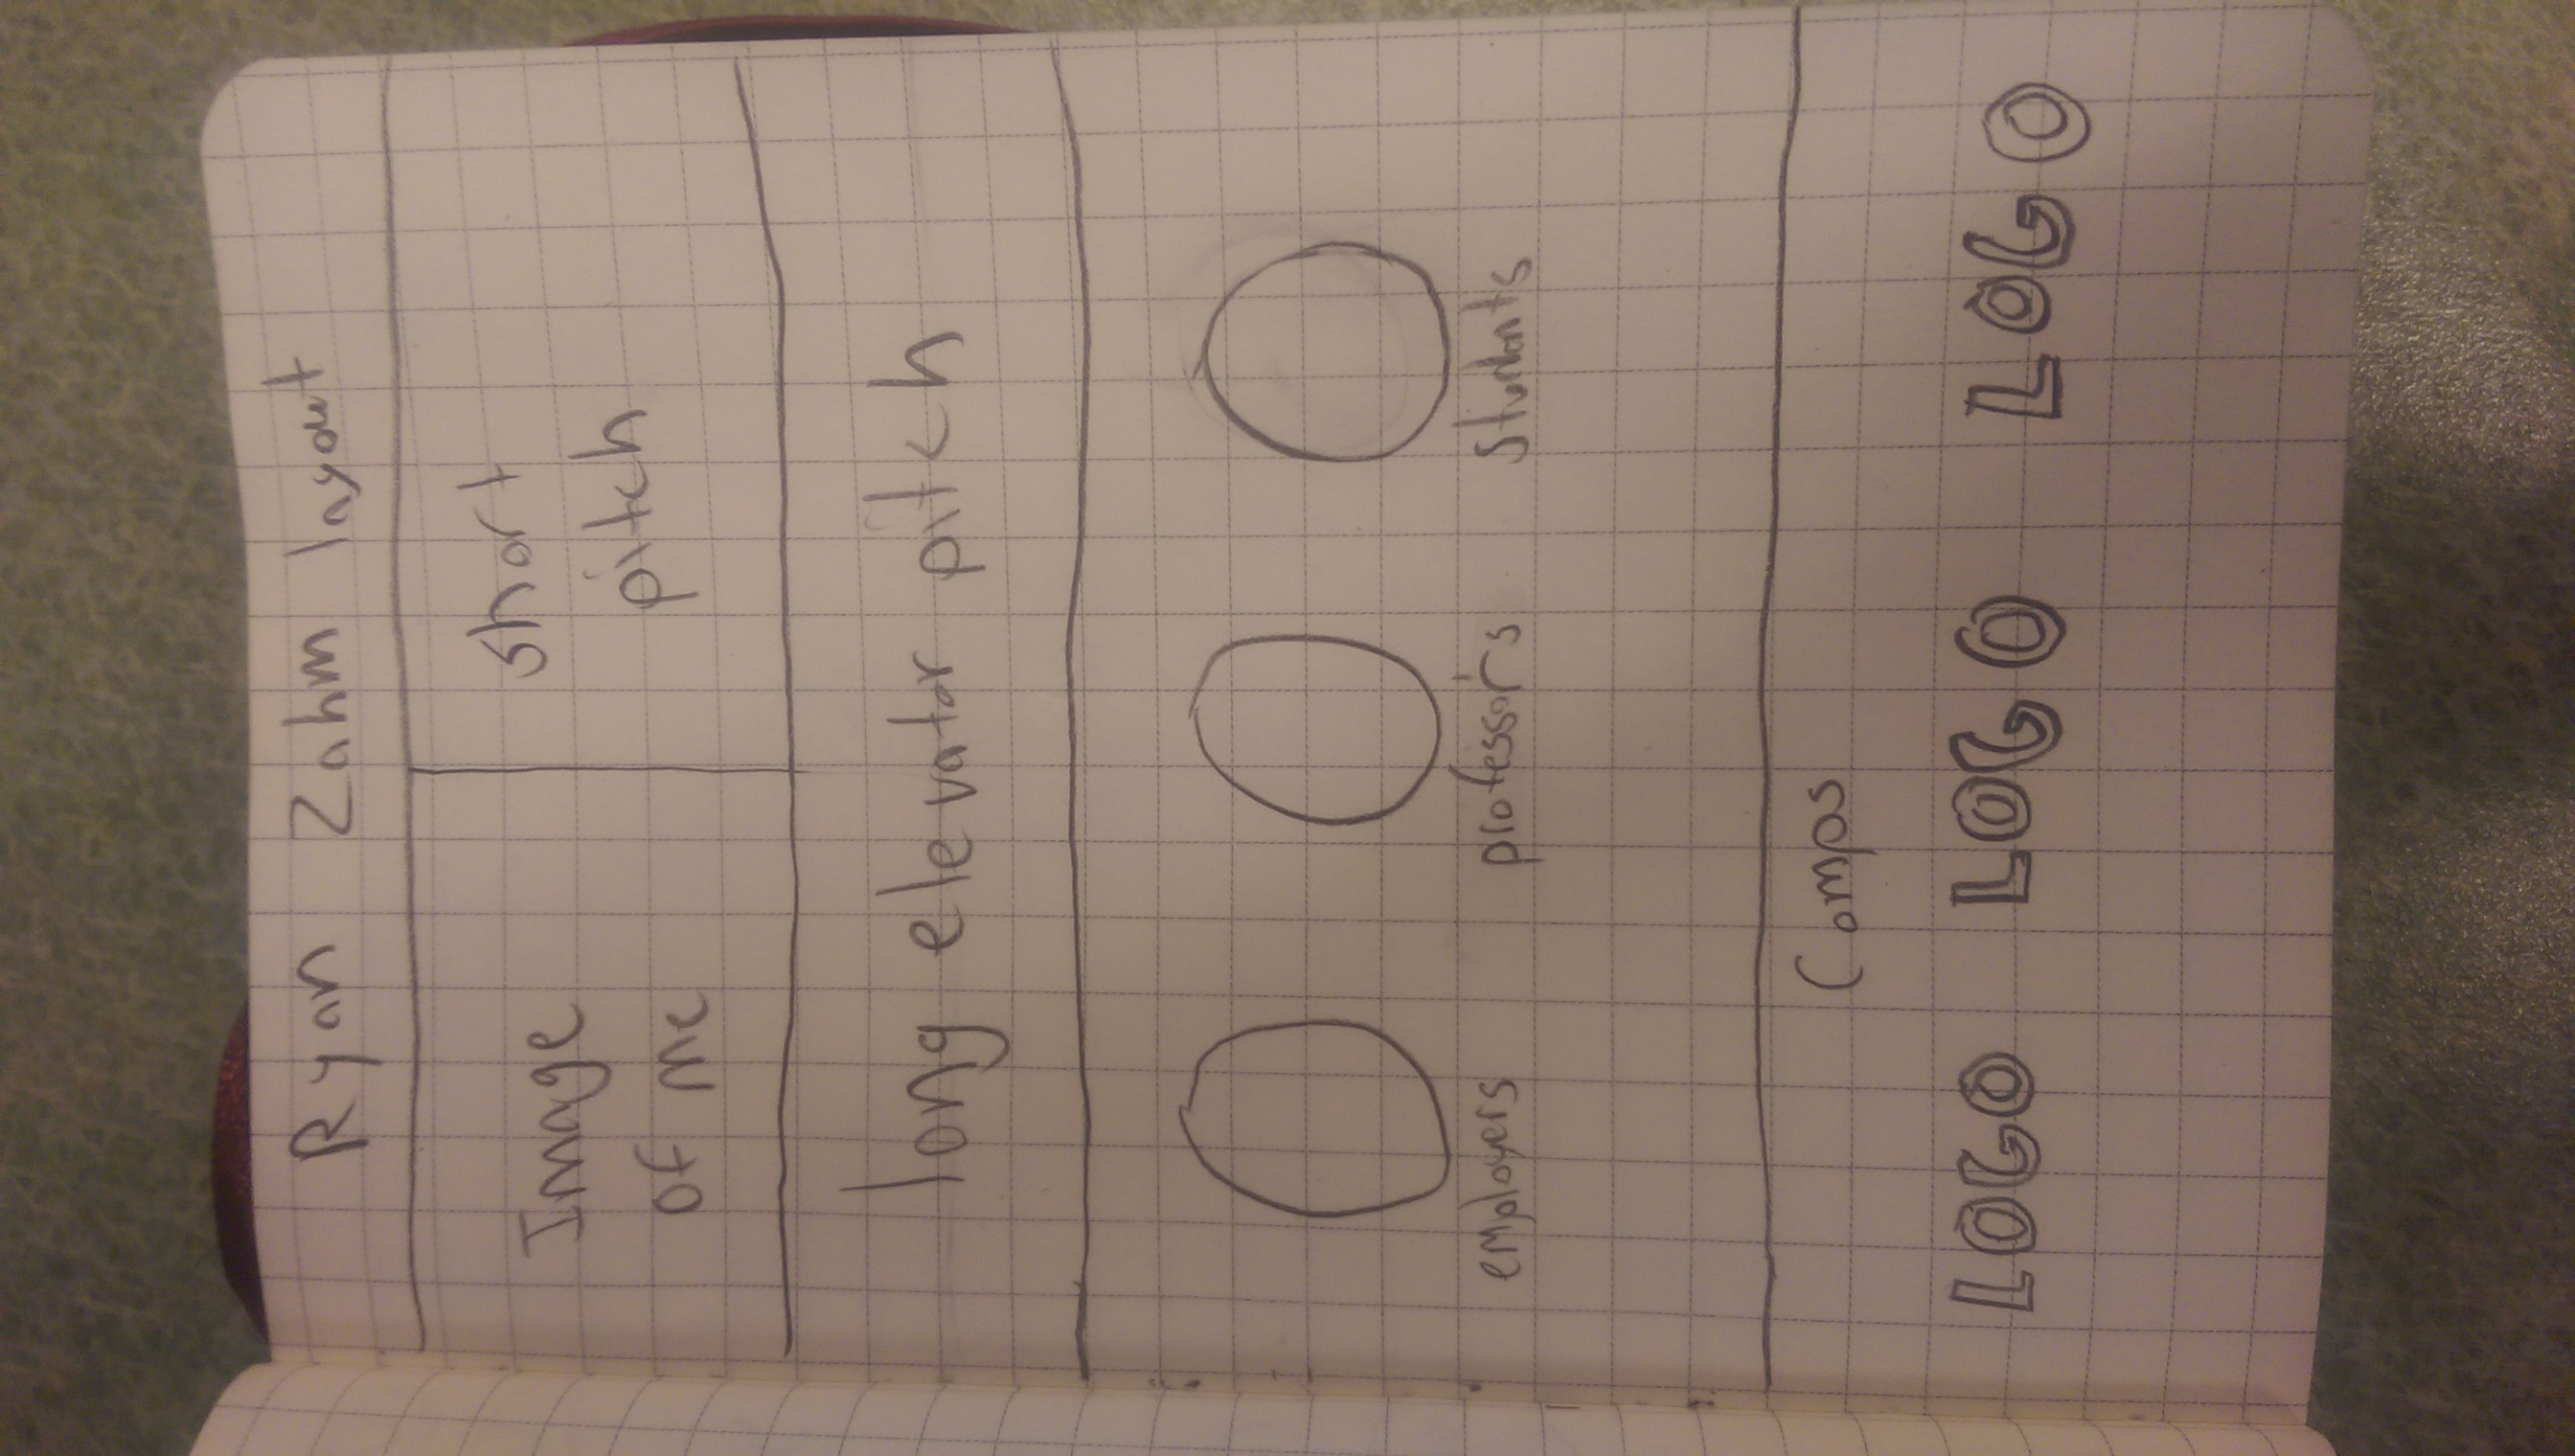 Ryan Zahm layout
Image
of me
short
pitch
long elevator pitch
employers
professors
students
Comps
LOGO
LOGO
LOGO